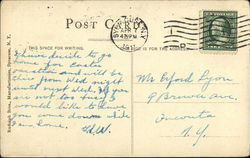 POST CARD
THIS SPACE FOR WRITING.
IS FOR THE ADDRESS
Rudolph Bros., Manufacturers, Syracuse, N. Y.
I have decide to go
home for Easter
vacation and will be
there from Wed night
until next Wed. If you
are not too busy I
would like to have
you come down while
I am home.
Mr. Byford Lyon
9 Brown Ave.
Oneonta
N. Y.